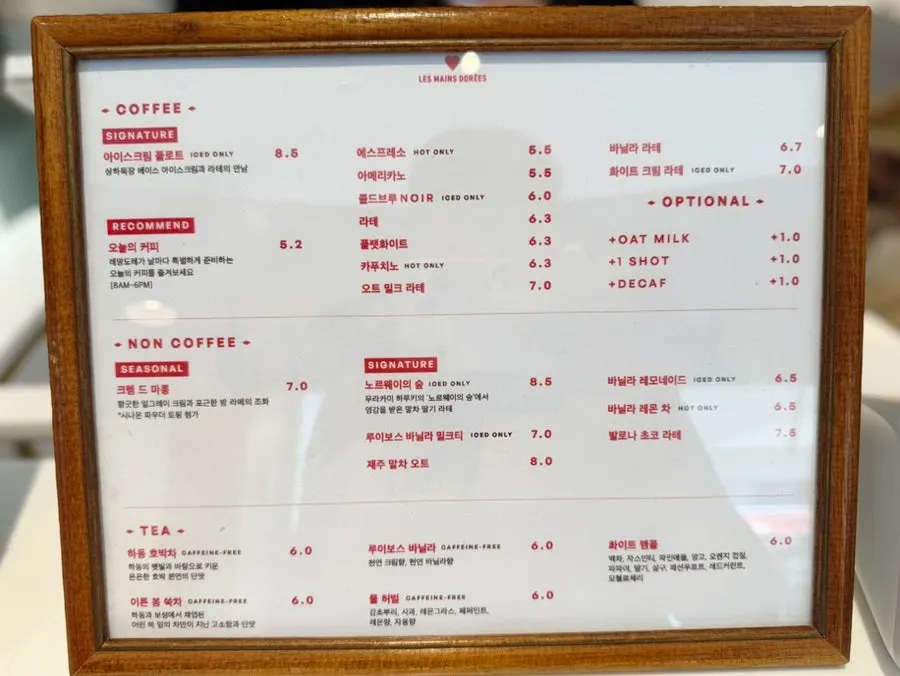 LES MAINS DORÉES
COFFEE
SIGNATURE
아이스크림 플로트 ICED ONLY 8.5
상하목장 베이스 아이스크림과 라테의 만남
RECOMMEND
오늘의 커피 5.2
레망도레가 날마다 특별하게 준비하는
오늘의 커피를 즐겨보세요
[8AM-6PM]
에스프레소 HOT ONLY 5.5
아메리카노 5.5
콜드브루 NOIR ICED ONLY 6.0
라테 6.3
플랫화이트 6.3
카푸치노 HOT ONLY 6.3
오트 밀크 라테 7.0
바닐라 라테 6.7
화이트 크림 라테 ICED ONLY 7.0
OPTIONAL
+OAT MILK +1.0
+1 SHOT +1.0
+DECAF +1.0
NON COFFEE
SEASONAL
크렘 드 마롱 7.0
향긋한 얼그레이 크림과 포근한 밤 라떼의 조화
*시나몬 파우더 토핑 첨가
SIGNATURE
노르웨이의 숲 ICED ONLY 8.5
무라카미 하루키의 '노르웨이의 숲'에서
영감을 받은 말차 딸기 라테
루이보스 바닐라 밀크티 ICED ONLY 7.0
제주 말차 오트 8.0
바닐라 레모네이드 ICED ONLY 6.5
바닐라 레몬 차 HOT ONLY 6.5
발로나 초코 라테 7.5
TEA
하동 호박차 CAFFEINE-FREE 6.0
하동의 햇빛과 바람으로 키운
은은한 호박 본연의 단맛
이른 봄 쑥차 CAFFEINE-FREE 6.0
하동과 보성에서 재업된
어린 쑥 잎의 차만이 지닌 고소함과 단맛
루이보스 바닐라 CAFFEINE-FREE 6.0
천연 크림향, 천연 바닐라향
풀 허벌 CAFFEINE-FREE 6.0
감초뿌리, 사과, 레몬그라스, 페퍼민트,
레몬향, 자몽향
화이트 템플 6.0
백차, 자스민티, 파인애플, 망고, 오렌지 껍질,
파파야, 딸기, 살구, 패션푸르트, 레드커런트,
모렐로체리